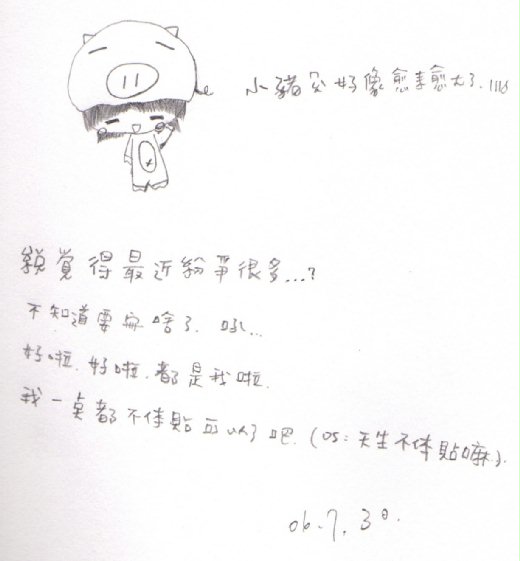 小豬公好像愈來愈大了.
覺得最近紛爭很多...?
不知道要幹啥了. 吼...
好啦. 好啦. 都是我啦.
我一點都不体貼可以了吧. (OS: 天生不体貼嘛).
06. 7. 30.